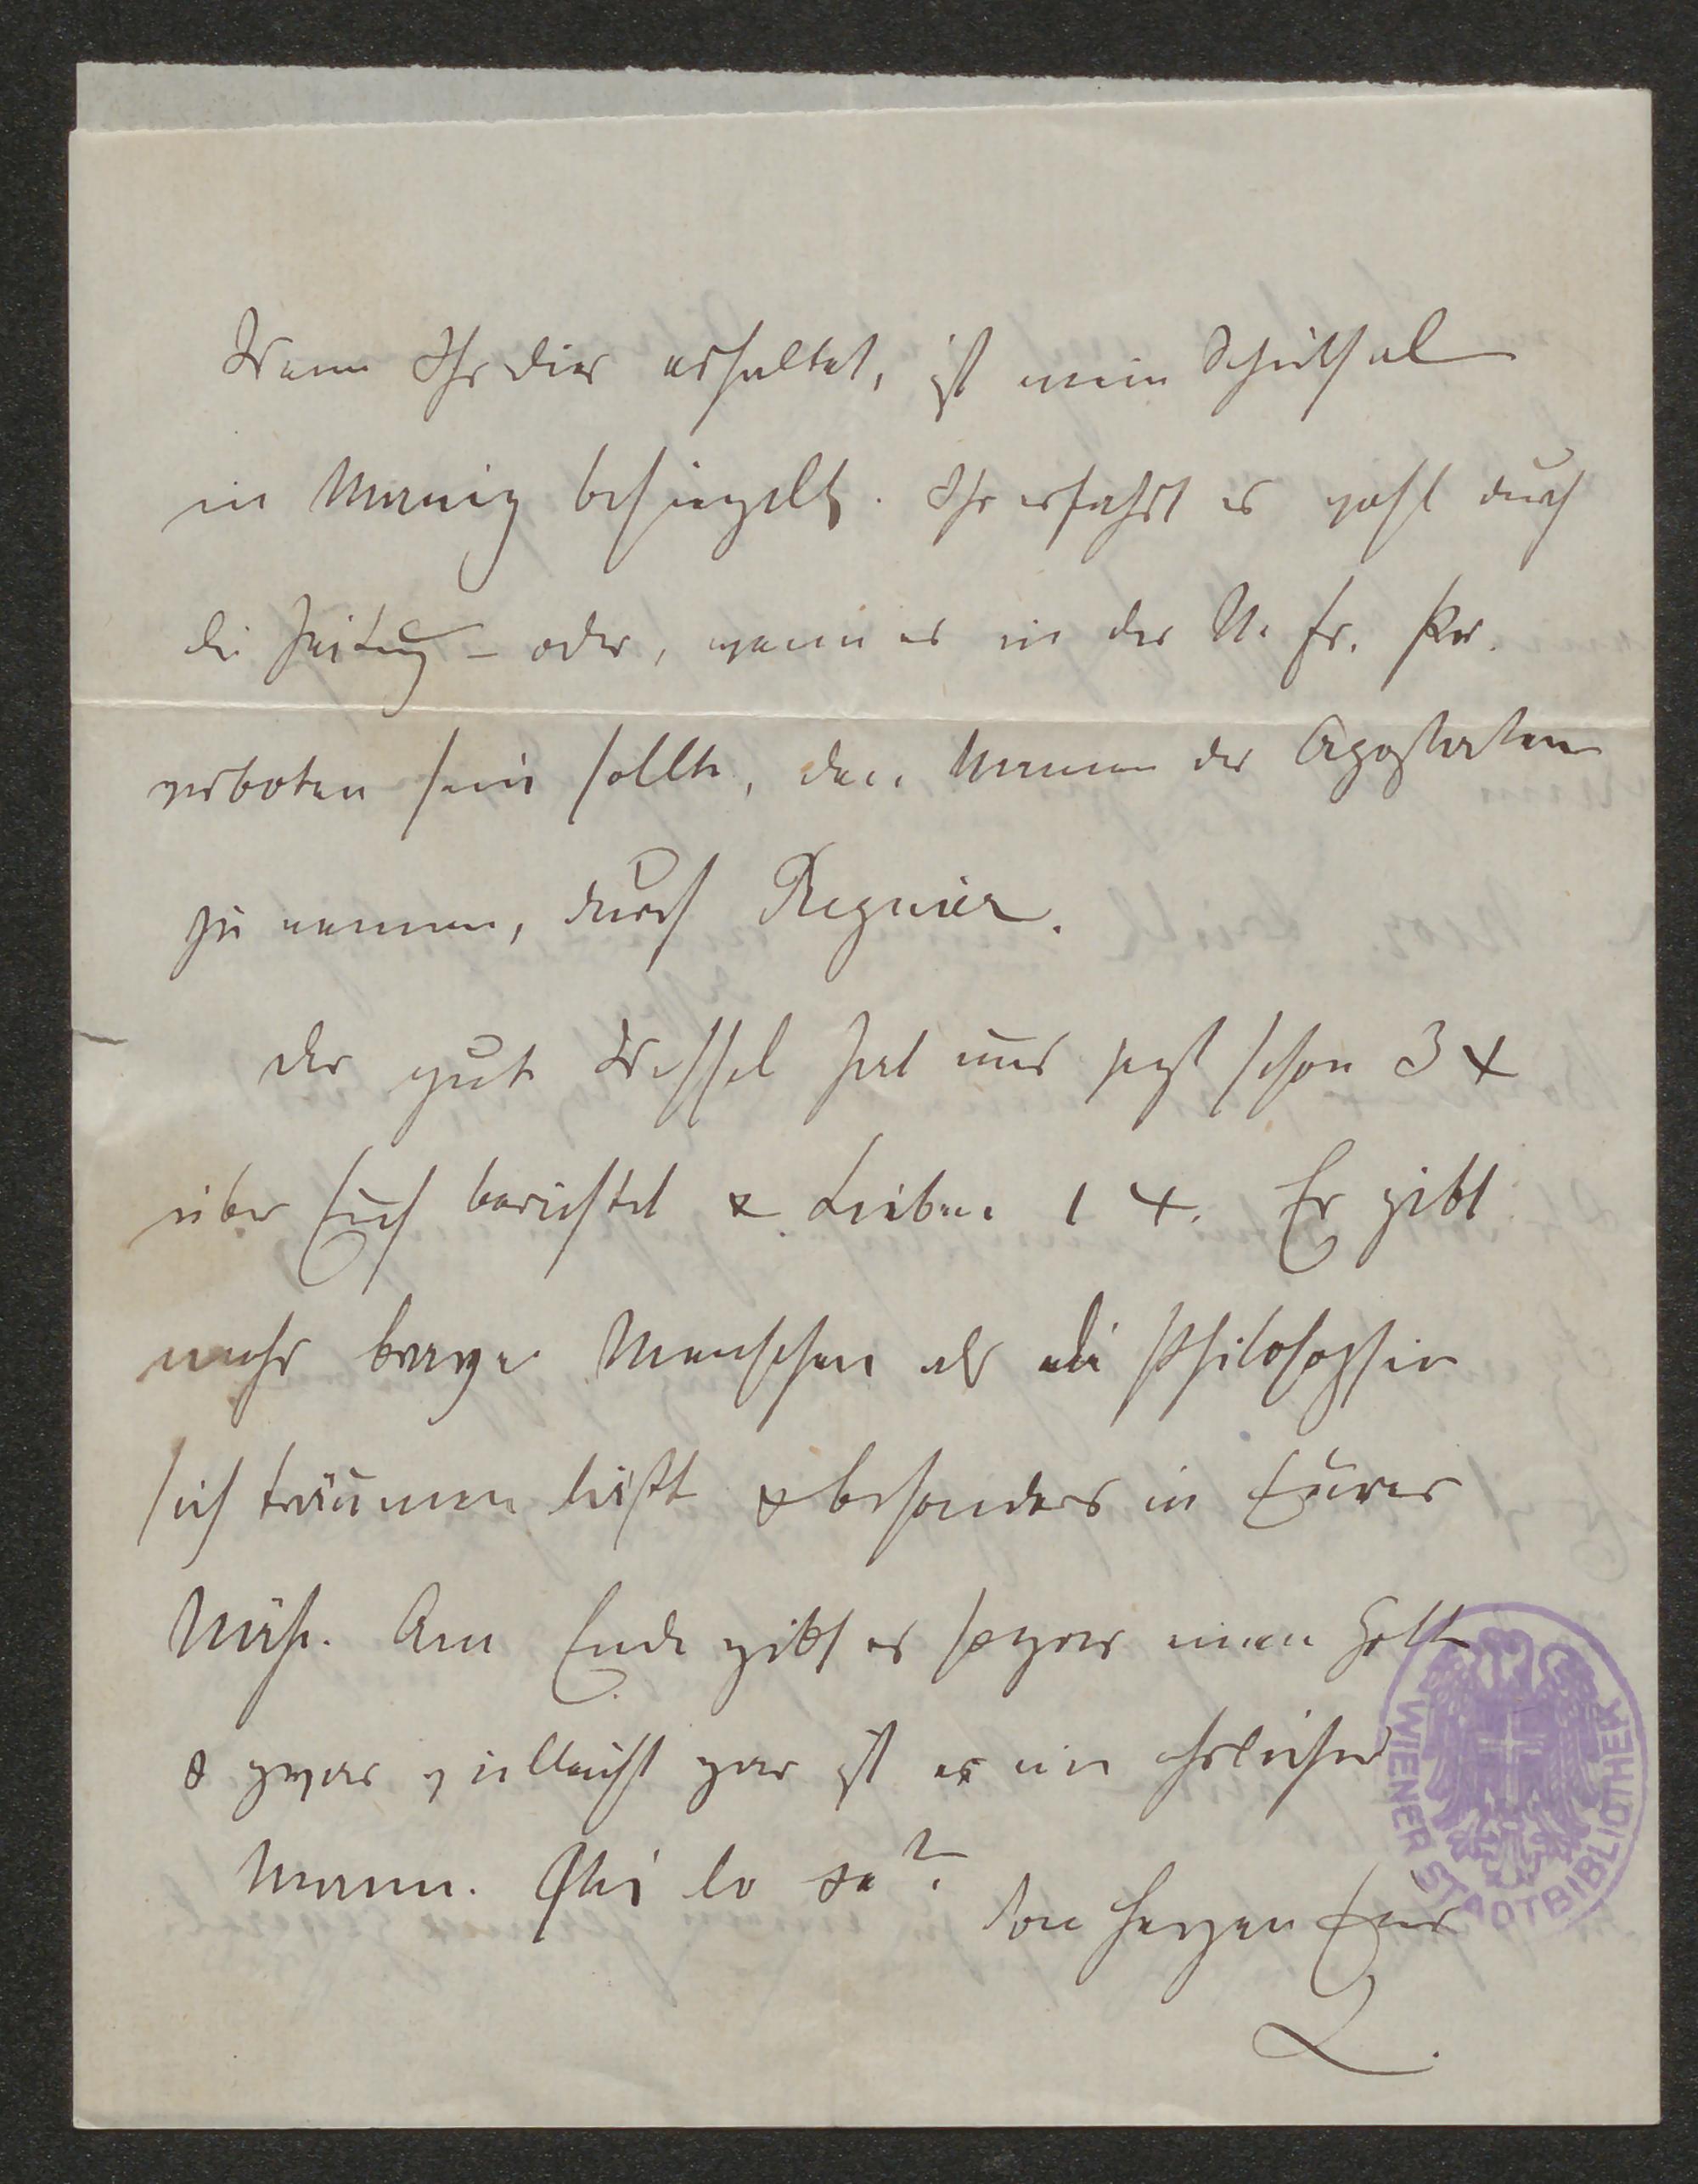 Wenn Ihr dies erhaltet, ist mein Schicksal
in besiegelt. Ihr erfahrt es wohl durch
die Zeitung – oder, wenn es in der N. fr. Pr.
verboten sein sollte, den Namen des Apostaten
zu nennen, durch Regnier.
Der gute Wessel hat uns jetzt schon 3 ×
über Euch berichtet & 1 ×. Er gibt
mehr brave Menschen als die Philosophie
sich träumen läßt & besonders in Eurer
Nähe. Am Ende gibt es sogar einen Gott
& zwar vielleicht gar ist es ein ehrlicher
Mann. Chi lo sa?
Von Herzen Euer
L.
WIENER STADTBIBLIOTHEK